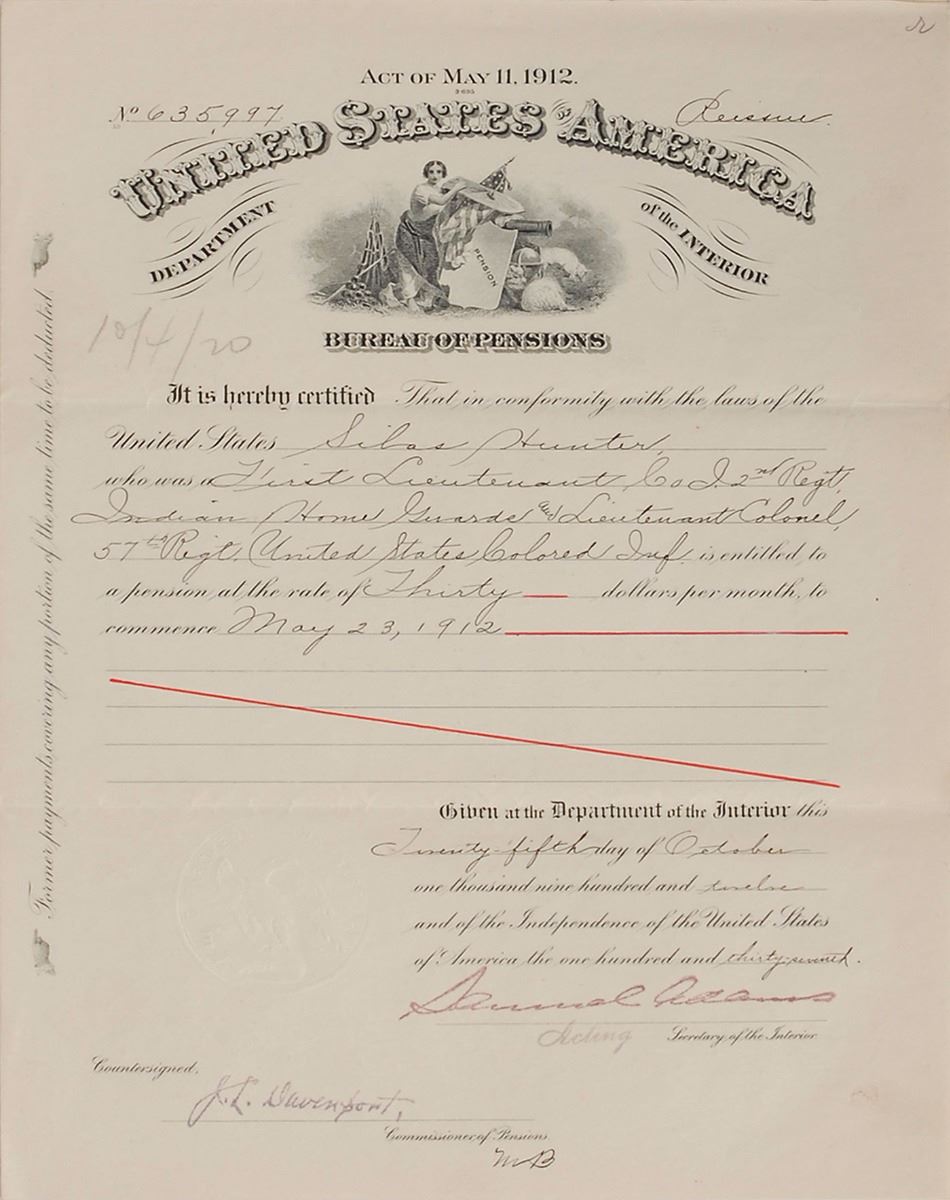 ACT OF MAY 11, 1912.
3-695
No 635,997
Reissue.
UNITED STATES OF AMERICA
DEPARTMENT of the INTERIOR
PENSION
BUREAU OF PENSIONS
10/4/20
It is hereby certified That in conformity with the laws of the
United States Silas Hunter,
who was a First Lieutenant, Co I. 2nd Regt.
Indian Home Guards and Lieutenant Colonel,
57th Regt. United States Colored Inf. is entitled to
a pension at the rate of Thirty dollars per month, to
commence May 23, 1912
Former payments covering any portion of the same time to be deducted.
Given at the Department of the Interior this
Twenty-fifth day of October
one thousand nine hundred and twelve
and of the Independence of the United States
of America the one hundred and thirty-seventh.
Samuel Adams
Acting Secretary of the Interior.
Countersigned,
J. L. Davenport,
Commissioner of Pensions.
MB